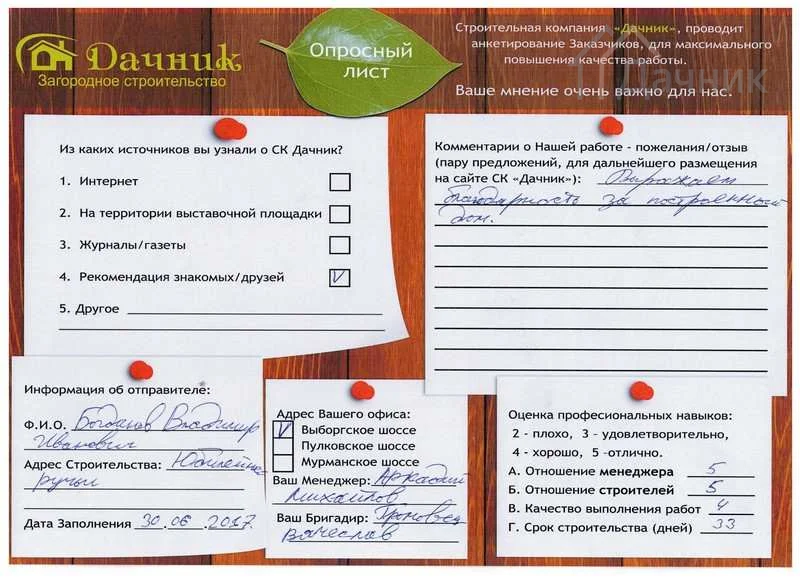 Дачник
Загородное строительство
Опросный
лист
Строительная компания «Дачник», проводит
анкетирование Заказчиков, для максимального
повышения качества работы.
Ваше мнение очень важно для нас.
Дачник
Из каких источников вы узнали о СК Дачник?
1. Интернет
2. На территории выставочной площадки
3. Журналы/газеты
4. Рекомендация знакомых/друзей V
5. Другое
Комментарии о Нашей работе - пожелания/отзыв
(пару предложений, для дальнейшего размещения
на сайте СК «Дачник»): Выражаем
благодарность за построенный
дом.
Информация об отправителе:
Ф.И.О. Богданов Владимир
Иванович
Адрес Строительства: Юбилейное
ручьи
Дата Заполнения 30.06.2017.
Адрес Вашего офиса:
V Выборгское шоссе
Пулковское шоссе
Мурманское шоссе
Ваш Менеджер: Аркадий
Михайлов
Ваш Бригадир:
Вячеслав
Оценка професиональных навыков:
2 - плохо, 3 - удовлетворительно,
4 - хорошо, 5 -отлично.
А. Отношение менеджера 5
Б. Отношение строителей 5
В. Качество выполнения работ 4
Г. Срок строительства (дней) 33